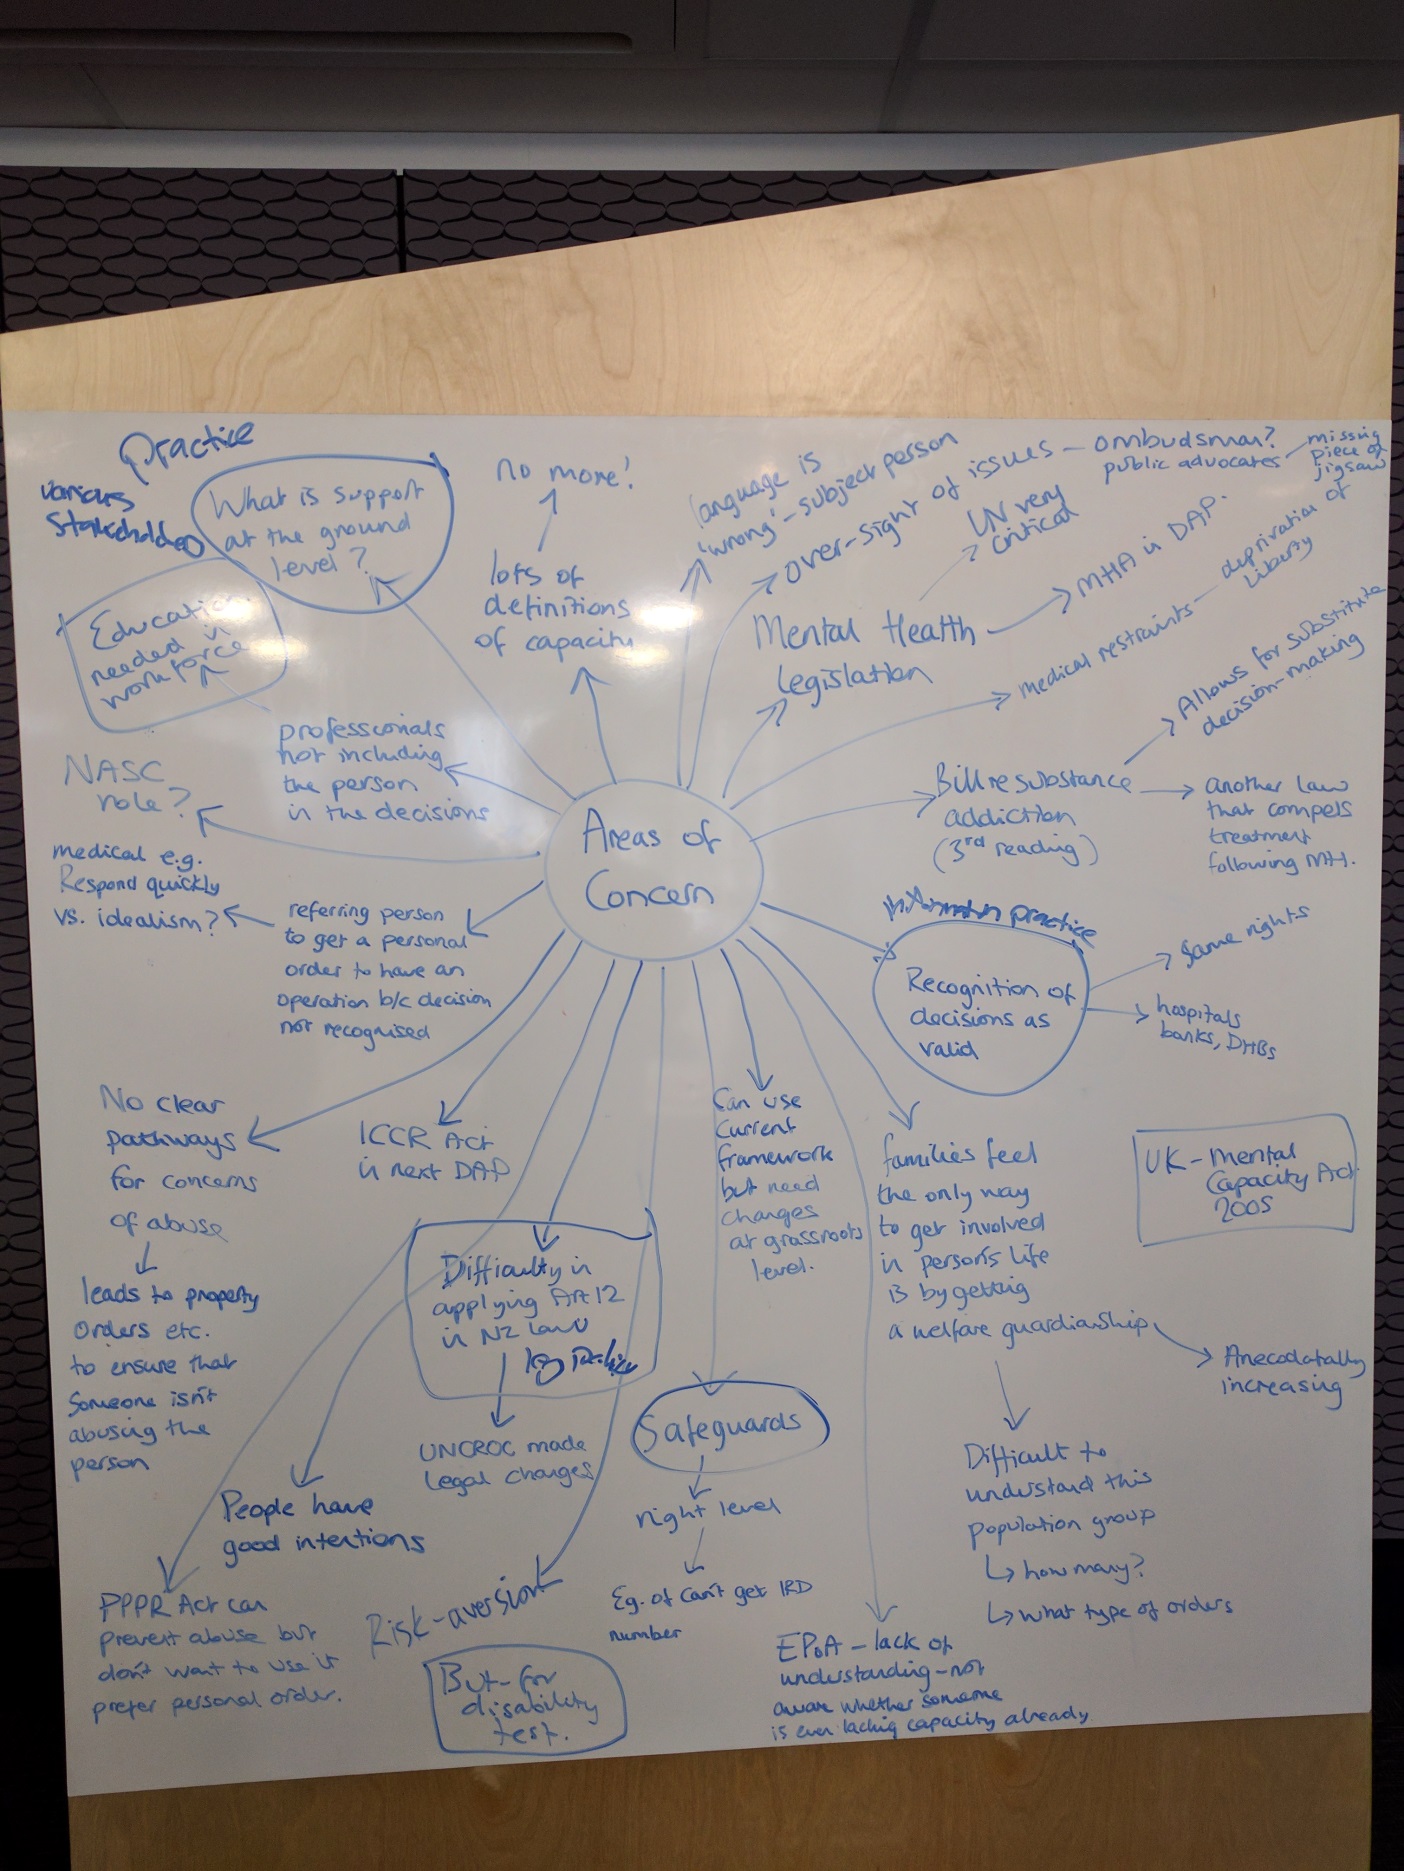 Practice
various
Stakeholders
What is support
at the ground
level?
Education
needed in
workforce
no more!
lots of
definitions
of capacity
language is
'wrong' - subject person
over-sight of issues - ombudsman?
public advocates
missing
piece of
jigsaw
UN very
critical
Mental Health
legislation
MHA in DAP.
medical restraints
deprivation of
liberty
Bill re substance
addiction
(3rd reading)
Allows for substitute
decision-making
another law
that compels
treatment
following MH.
professionals
not including
the person
in the decisions
NASC
role?
medical e.g.
Respond quickly
vs. idealism?
referring person
to get a personal
order to have an
operation b/c decision
not recognised
Areas of
Concern
practice
Recognition of
decisions as
valid
same rights
hospitals
banks, DHBs
No clear
pathways
for concerns
of abuse
leads to property
orders etc.
to ensure that
someone isn't
abusing the
person
ICCR Act
in next DAP
Difficulty in
applying Art 12
in NZ law
UNCROC made
legal changes
Can use
current
framework
but need
changes
at grassroots
level.
families feel
the only way
to get involved
in person's life
is by getting
a welfare guardianship
Anecodatally
increasing
Difficult to
understand this
population group
how many?
what type of orders
UK - Mental
Capacity Act
2005
Safeguards
right level
Eg. of can't get IRD
number
People have
good intentions
PPPR Act can
prevent abuse but
don't want to use it
prefer personal order.
Risk-aversion
But-for
disability
test.
EPoA - lack of
understanding - not
aware whether someone
is even lacking capacity already